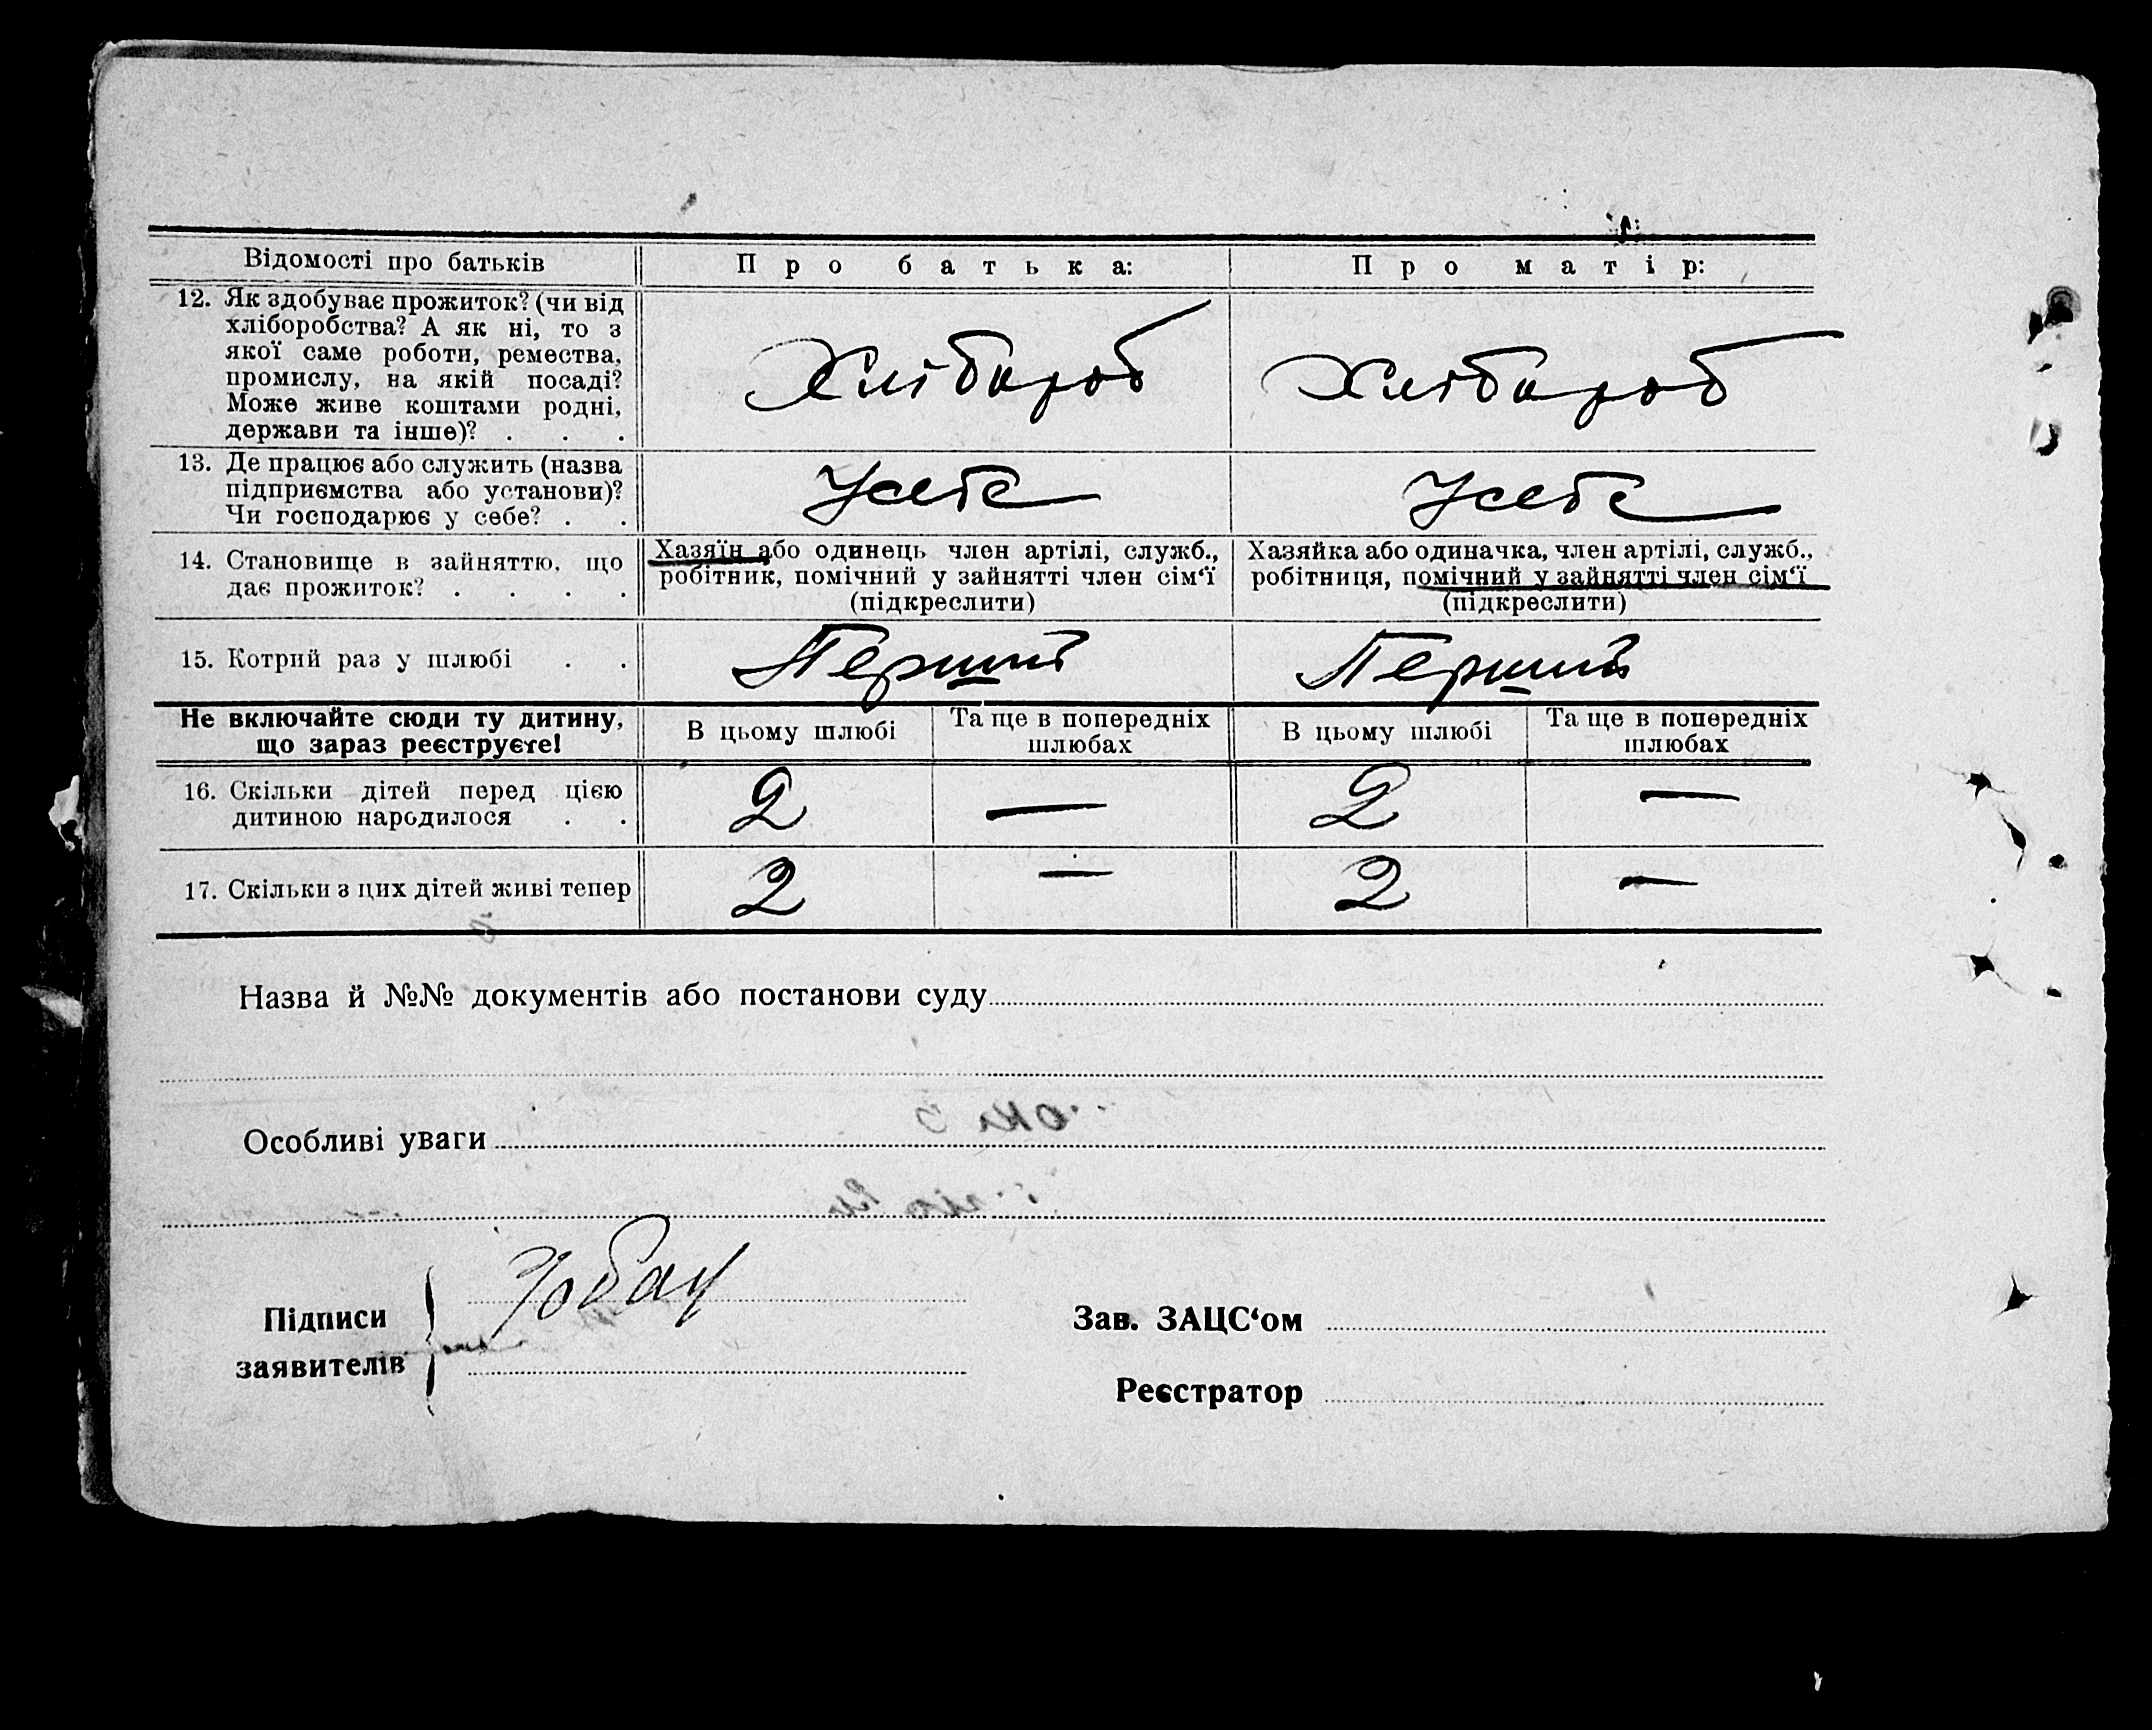 Відомості про батьків	Про батька:	Про матір:
12. Як здобуває прожиток? (чи від
хліборобства? А як ні, то з
якої саме роботи, ремества,
промислу, на якій посаді?
Може живе коштами родні,
держави та інше)? . . .
Хлібороб	Хлібороб
13. Де працює або служить (назва
підприємства або установи)?
Чи господарює у себе? . .
Усебе	Усебе
14. Становище в зайняттю, що
дає прожиток? . . . .
Хазяїн або одинець член артілі, служб.,
робітник, помічний у зайнятті член сім‘ї
(підкреслити)
Хазяйка або одиначка, член артілі, служб.,
робітниця, помічний у зайнятті член сім‘ї
(підкреслити)
15. Котрий раз у шлюбі . .	Перший	Перший
Не включайте сюди ту дитину,
що зараз реєструєте!
В цьому шлюбі
Та ще в попередніх
шлюбах
В цьому шлюбі
Та ще в попередніх
шлюбах
16. Скільки дітей перед цією
дитиною народилося . .
2	—	2	—
17. Скільки з цих дітей живі тепер	2	—	2	—
Назва й №№ документів або постанови суду
Особливі уваги
Підписи
заявителів
Зав. ЗАЦС‘ом
Реєстратор